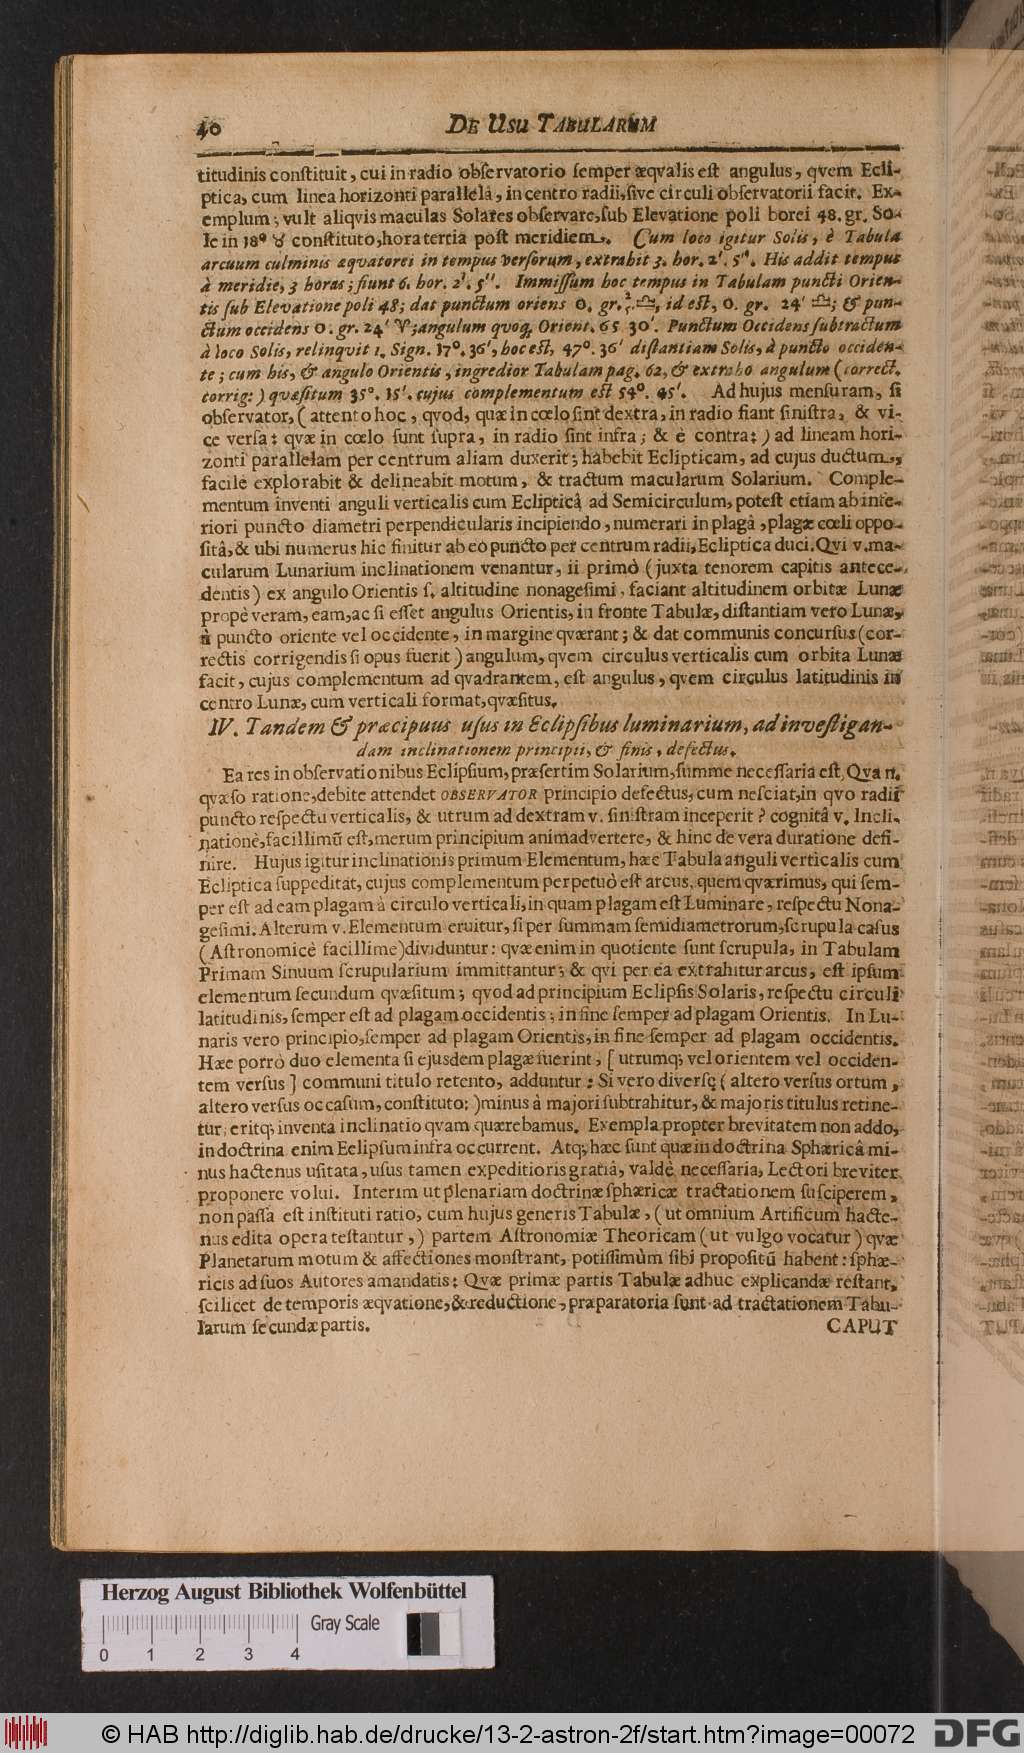 40 DE USU TABULARUM
titudinis conſtituit, cui in radio obſervatorio ſemper æqvalis eſt angulus, qvem Ecli-
ptica, cum linea horizonti parallelâ, in centro radii, ſive circuli obſervatorii facit. Ex-
emplum; vult aliqvis maculas Solares obſervare, ſub Elevatione poli borei 48. gr. So-
le in 18° ♉ conſtituto, hora tertiâ poſt meridiem. Cum loco igitur Solis, è Tabula
arcuum culminis æquatorei in tempus verſorum, extrahit 3. hor. 2'. 5''. His addit tempus
à meridie, 3 horas; fiunt 6. hor. 2'. 5''. Immiſſum hoc tempus in Tabulam puncti Orien-
tis ſub Elevatione poli 48; dat punctum oriens 0. gr. ⅖ ♎, id eſt, 0. gr. 24' ♎; & pun-
ctum occidens 0. gr. 24' ♈; angulum quoq; Orient. 65 30'. Punctum Occidens ſubtractum
à loco Solis, relinqvit 1. Sign. 17°. 36', hoc eſt, 47°. 36' diſtantiam Solis, à puncto occiden-
te; cum his, & angulo Orientis, ingredior Tabulam pag. 62, & extraho angulum (correct.
corrig:) quæſitum 35°. 15'. cujus complementum eſt 54°. 45'. Ad hujus menſuram, ſi
obſervator, (attento hoc, qvod, quæ in cœlo ſint dextra, in radio fiant ſiniſtra, & vi-
ce verſa: qvæ in cœlo ſunt ſupra, in radio ſint infra; & è contra:) ad lineam hori-
zonti parallelam per centrum aliam duxerit; habebit Eclipticam, ad cujus ductum,
facilè explorabit & delineabit motum, & tractum macularum Solarium. Comple-
mentum inventi anguli verticalis cum Eclipticâ ad Semicirculum, poteſt etiam ab infe-
riori puncto diametri perpendicularis incipiendo, numerari in plagâ, plagæ cœli oppo-
ſitâ, & ubi numerus hic finitur ab eo puncto per centrum radii, Ecliptica duci. Qvi v. ma-
cularum Lunarium inclinationem venantur, ii primò (juxta tenorem capitis antece-
dentis) ex angulo Orientis ſ. altitudine nonageſimi, faciant altitudinem orbitæ Lunæ
propè veram, eam, ac ſi eſſet angulus Orientis, in fronte Tabulæ, diſtantiam vero Lunæ,
à puncto oriente vel occidente, in margine qværant; & dat communis concurſus (cor-
rectis corrigendis ſi opus fuerit) angulum, qvem circulus verticalis cum orbita Lunæ
facit, cujus complementum ad qvadrantem, eſt angulus, qvem circulus latitudinis in
centro Lunæ, cum verticali format, qvæſitus.
IV. Tandem & præcipuus uſus in Eclipſibus luminarium, ad inveſtigan-
dam inclinationem principii, & finis, defectus.
Ea res in obſervationibus Eclipſium, præſertim Solarium, ſumme neceſſaria eſt, Qva n.
qvæſo ratione, debite attendet OBSERVATOR principio defectus, cum neſciat, in qvo radii
puncto reſpectu verticalis, & utrum ad dextram v. ſiniſtram inceperit? cognitâ v. Incli-
natione, facillimũ eſt, merum principium animadvertere, & hinc de vera duratione defi-
nire. Hujus igitur inclinationis primum Elementum, hæc Tabula anguli verticalis cum
Ecliptica ſuppeditat, cujus complementum perpetuò eſt arcus, quem qværimus, qui ſem-
per eſt ad eam plagam à circulo verticali, in quam plagam eſt Luminare, reſpectu Nona-
geſimi. Alterum v. Elementum eruitur, ſi per ſummam ſemidiametrorum, ſcrupula caſus
(Aſtronomicè facillime) dividuntur: qvæ enim in quotiente ſunt ſcrupula, in Tabulam
Primam Sinuum ſcrupularium immittantur; & qvi per ea extrahitur arcus, eſt ipſum
elementum ſecundum qvæſitum; qvod ad principium Eclipſis Solaris, reſpectu circuli
latitudinis, ſemper eſt ad plagam occidentis; in fine ſemper ad plagam Orientis. In Lu-
naris vero principio, ſemper ad plagam Orientis, in fine ſemper ad plagam occidentis.
Hæc porrò duo elementa ſi ejusdem plagæ fuerint, [utrumq; vel orientem vel occiden-
tem verſus] communi titulo retento, adduntur: Si vero diverſę (altero verſus ortum,
altero verſus occaſum, conſtituto:) minus à majori ſubtrahitur, & majoris titulus retine-
tur, eritq; inventa inclinatio qvam quærebamus. Exempla propter brevitatem non addo,
in doctrina enim Eclipſum infra occurrent. Atq; hæc ſunt quæ in doctrina Sphæricâ mi-
nus hactenus uſitata, uſus tamen expeditioris gratiâ, valdè neceſſaria, Lectori breviter
proponere volui. Interim ut plenariam doctrinæ ſphæricæ tractationem ſuſciperem,
non paſſa eſt inſtituti ratio, cum hujus generis Tabulæ, (ut omnium Artificum hacte-
nus edita opera teſtantur,) partem Aſtronomiæ Theoricam (ut vulgo vocatur) qvæ
Planetarum motum & affectiones monſtrant, potiſſimùm ſibi propoſitũ habent: ſphæ-
ricis ad ſuos Autores amandatis: Qvæ primæ partis Tabulæ adhuc explicandæ reſtant,
ſcilicet de temporis æqvatione, & reductione, præparatoria ſunt ad tractationem Tabu-
larum ſecundæ partis. CAPUT
Herzog August Bibliothek Wolfenbüttel
Gray Scale
0 1 2 3 4
© HAB http://diglib.hab.de/drucke/13-2-astron-2f/start.htm?image=00072 DFG